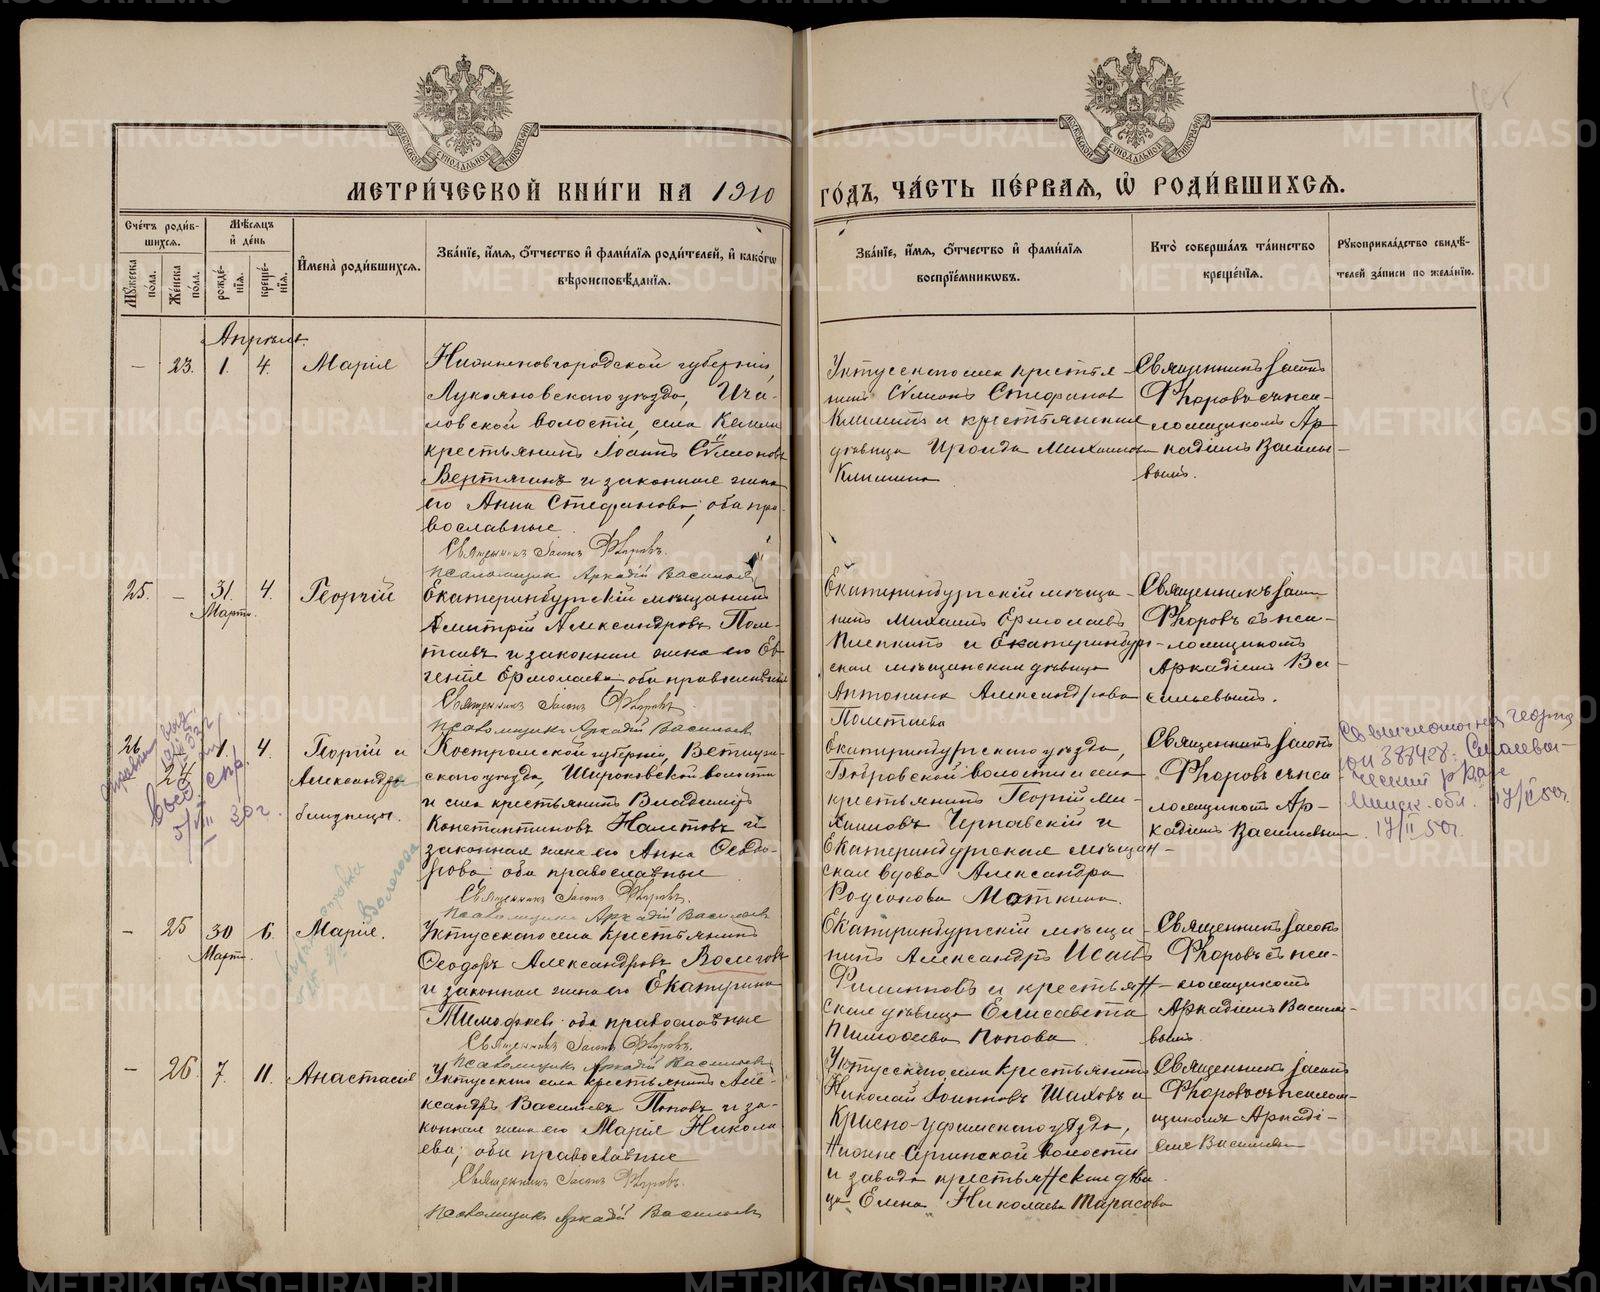 МЕТРИ́ЧЕСКОЙ КНИ́ГИ НА 1910
ГО́ДЪ, ЧА́СТЬ ПЕ́РВАѦ, Ѡ РОДИ́ВШИХСѦ.
Сче́тъ роди́в-
шихсѧ.
Мѣ́сѧцъ
и҆ де́нь
Му́жеска
по́ла.
Же́нска
по́ла.
рожде́-
нїѧ.
креще́-
нїѧ.
И҆мена̀ роди́вшихсѧ.
Зва́нїе, и҆́мѧ, ѻ҆́тчество и҆ фами́лїѧ роди́телей, и҆ како́гѡ
вѣроисповѣ́данїѧ.
Зва́нїе, и҆́мѧ, ѻ҆́тчество и҆ фами́лїѧ
воспрїе́мникѡвъ.
Кто̀ соверша́лъ та́инство
креще́нїѧ.
Рꙋкоприкла́дство свидѣ́-
телей за́писи по жела́нїю.
Апрѣль.
— 23. 1. 4. Марія
Нижненовгородской губерніи,
Лукояновскаго уѣзда, Ича-
ловской волости, села Кемли
крестьянинъ Іоаннъ Сѵмеоновъ
Вертянкъ и законная жена
его Анна Стефанова; оба пра-
вославные.
Священникъ Іасонъ Флоровъ.
Псаломщикъ Аркадій Васильевъ
Уктусскаго села крестья-
нинъ Сѵмеонъ Стефановъ
Климинъ и крестьянская
дѣвица Ираида Михаилова
Климина
Священникъ Іасонъ
Флоровъ съ пса-
ломщикомъ Ар-
кадіемъ Василье-
вымъ.
25. — 31. 4. Георгій
Марта.
Екатеринбургскій мѣщанинъ
Димитрій Александровъ Пол-
таевъ и законная жена его Ев-
генія Ермолаева; оба православные
Священникъ Іасонъ Флоровъ.
Псаломщикъ Аркадій Васильевъ
Екатеринбургскій мѣща-
нинъ Михаилъ Ермолаевъ
и Екатеринбург-
ская мѣщанская дѣвица
Антонина Александрова
Полтаева
Священникъ Іасонъ
Флоровъ съ пса-
ломщикомъ
Аркадіемъ Ва-
сильевымъ.
26. 24 1. 4. Георгій и
Александра
близнецы.
Костромской губерніи, Ветлуж-
скаго уѣзда, Широковской волости
и села крестьянинъ Владиміръ
Константиновъ Наметовъ и
законная жена его Анна Ѳеодо-
рова; оба православные
Священникъ Іасонъ Флоровъ.
Псаломщикъ Аркадій Васильевъ
Екатеринбургскаго уѣзда,
Бобровской волости и села
крестьянинъ Георгій Ми-
хаиловъ Чернавскій и
Екатеринбургская мѣщан-
ская вдова Александра
Родіонова Маткина.
Священникъ Іасонъ
Флоровъ съ пса-
ломщикомъ Ар-
кадіемъ Васильевымъ.
Минск. обл. 17/II 50г.
17/II 50г.
— 25 30 6. Марія.
Марта.
Уктусскаго села крестьянинъ
Ѳеодоръ Александровъ Волеговъ
и законная жена его Екатерина
Тимоѳеева; оба православные
Священникъ Іасонъ Флоровъ.
Псаломщикъ Аркадій Васильевъ
Екатеринбургскій мѣща-
нинъ Александръ Исаевъ
Филинновъ и крестьян-
ская дѣвица Елисавета
Тимоѳеева Попова.
Священникъ Іасонъ
Флоровъ съ пса-
ломщикомъ
Аркадіемъ Василье-
вымъ.
— 26. 7. 11. Анастасія
Уктусскаго села крестьянинъ Але-
ксандръ Васильевъ Поповъ и за-
конная жена его Марія Никола-
ева; оба православные
Священникъ Іасонъ Флоровъ.
Псаломщикъ Аркадій Васильевъ
Уктусскаго села крестьянинъ
Николай Іоанновъ Шаховъ и
Красно-Уфимскаго уѣзда,
Нижне Сергинской волости
и завода крестьянская дѣви-
ца Елена Николаева Тарасова
Священникъ Іасонъ
Флоровъ съ псалом-
щикомъ Аркаді-
емъ Васильевымъ
METRIKI.GASO-URAL.RU